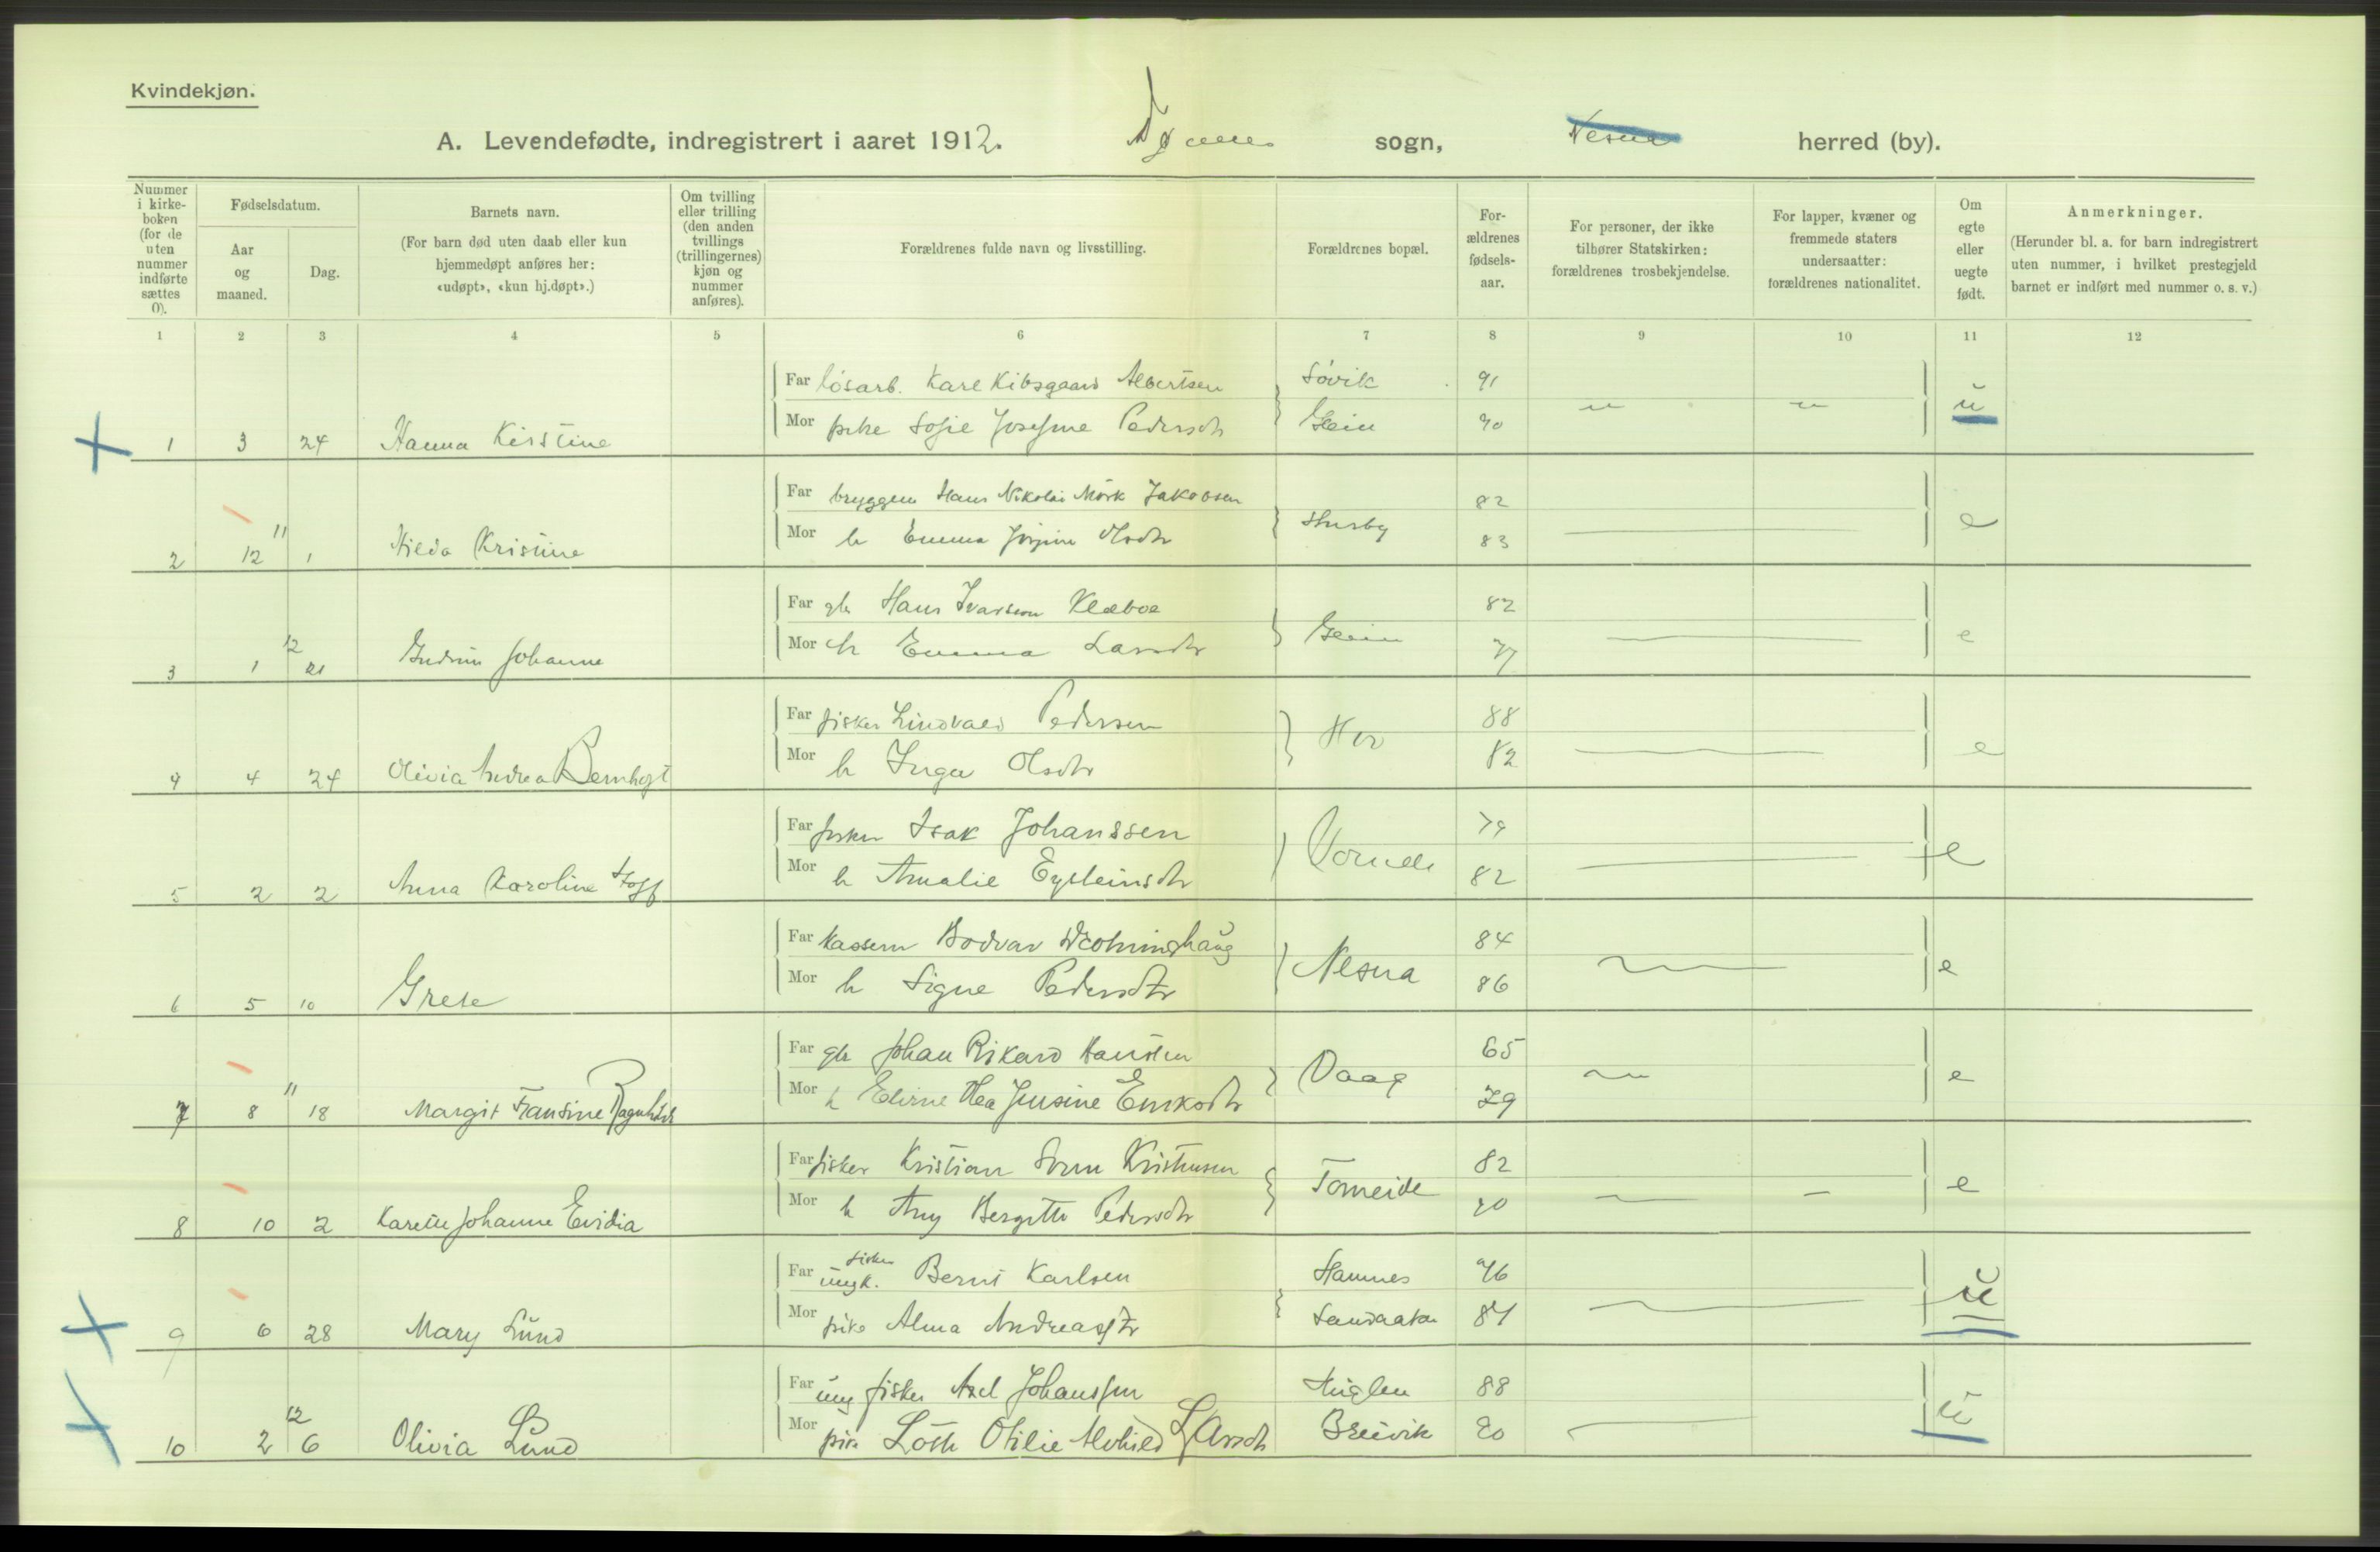 Kvindekjøn.
A. Levendefødte, indregistrert i aaret 1912. sogn, Nesna herred (by).
Nummer i kirke-boken (for de uten nummer indførte sættes 0).
Fødselsdatum.
Aar og maaned.
Dag.
Barnets navn.
(For barn død uten daab eller kun hjemmedøpt anføres her: «udøpt», «kun hj.døpt».)
Om tvilling eller trilling (den anden tvillings (trillingernes) kjøn og nummer anføres).
Forældrenes fulde navn og livsstilling.
Forældrenes bopæl.
For-ældrenes fødsels-aar.
For personer, der ikke tilhører Statskirken: forældrenes trosbekjendelse.
For lapper, kvæner og fremmede staters undersaatter: forældrenes nationalitet.
Om egte eller uegte født.
Anmerkninger.
(Herunder bl. a. for barn indregistrert uten nummer, i hvilket prestegjeld barnet er indført med nummer o. s. v.)
1 2 3 4 5 6 7 8 9 10 11 12
Far løsarb. Karl Kibsgaard Albertsen Søvik 91
Mor pike Sofie Josefine Pedersdtr 90 u
1 3 24 Hanna Kirstine
Far Hans Nikolai Mørk Jakobsen 82
Mor h Emma Jørgine Olsdtr Husby 83 e
2 12 11 1 Hilda Kristine
Far gb Hans Ivarsen Klæboe 82
Mor h Emma Larsdtr 77 e
3 1 12 21 Gudrun Johanne
Far fisker Lindvald Pedersen 88
Mor h Inga Olsdtr 82 e
4 4 24 Olivia Andrea
Far fisker Isak Johanssen 79
Mor h Amalie Eysteinsdtr 82 e
5 2 2 Anna Karoline Hoff
Far Bodvar 84
Mor h Signe Pedersdtr Nesna 86 e
6 5 10 Grete
Far gb Johan Rikard Hansen 65
Mor h Jensine Vaag 79 e
7 8 11 18 Margit Fransine Ragnhild
Far fisker Kristian Kristensen 82
Mor h Any Bergitte Pedersdtr Tomeide 90 e
8 10 2 Johanne Evidia
Far ungk. fisker Bernt Karlsen Hamnes 76
Mor pike Alma Andreasdtr 84 u
9 6 28 Mary Lund
Far ung fisker Axel Johanssen Huglen 88
Mor pike Otilie Alvhild Larsdtr Breivik 90 u
10 2 12 6 Olivia Lund